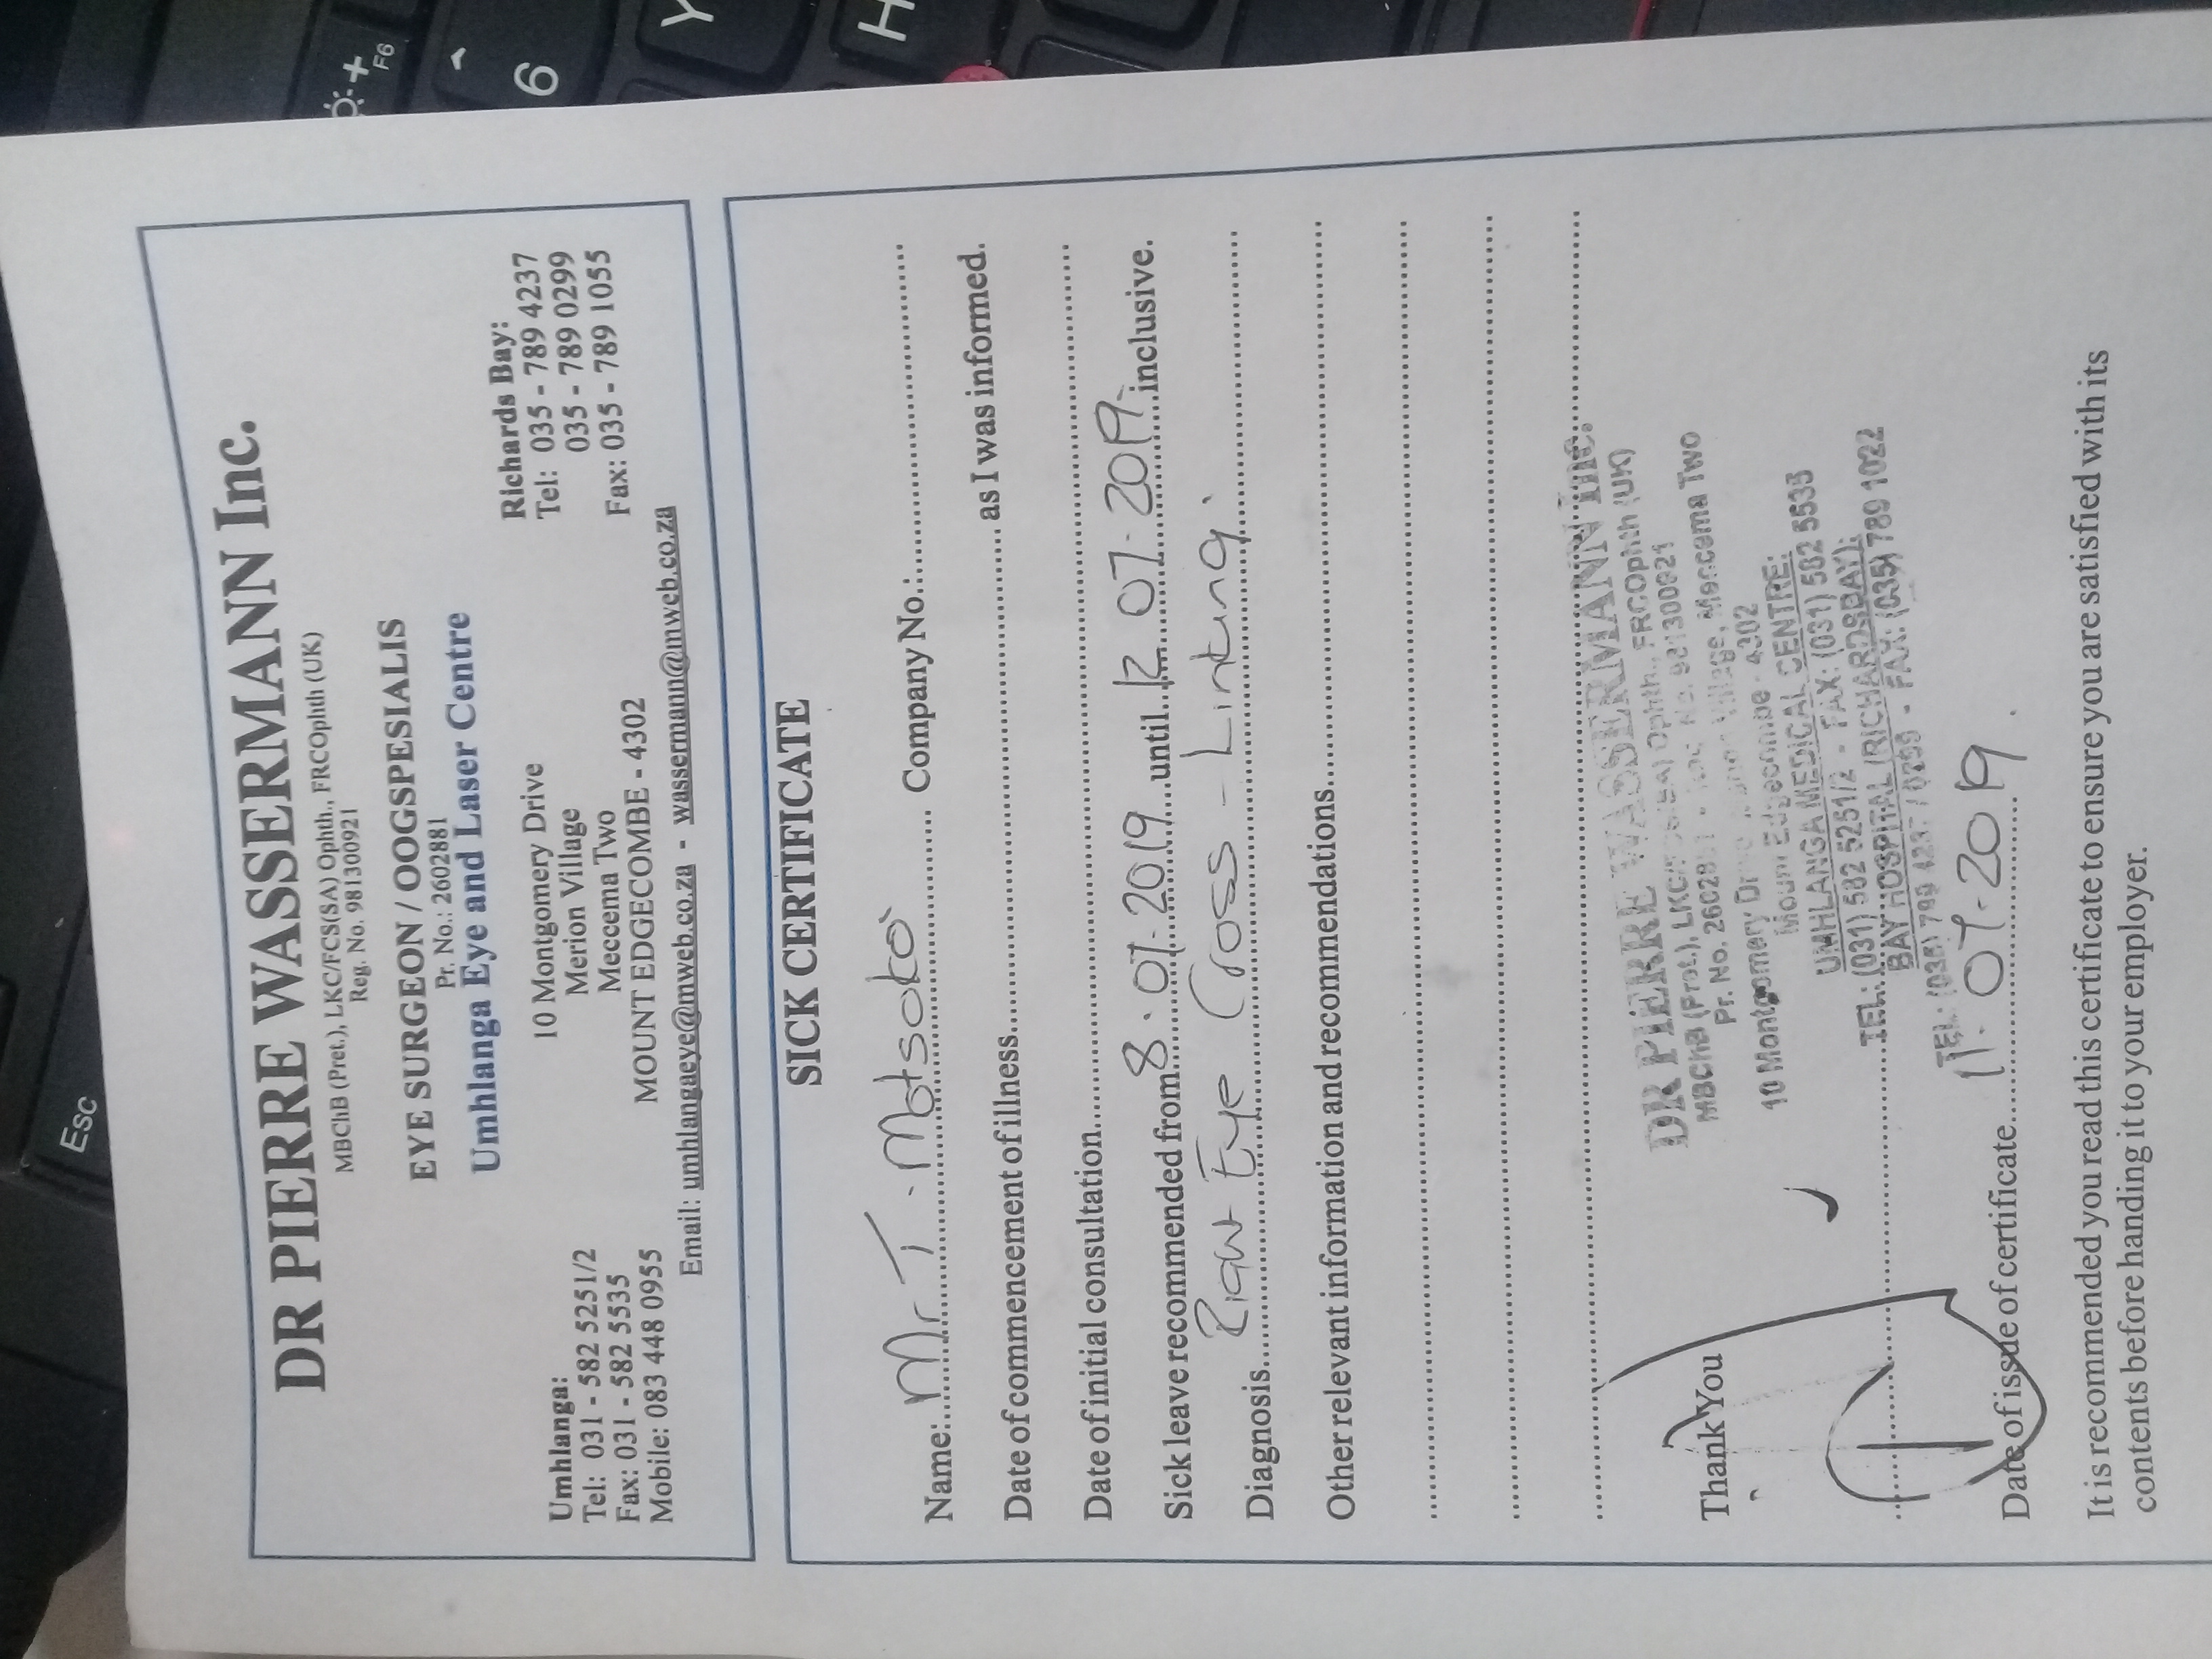 Esc
DR PIERRE WASSERMANN Inc.
MBChB (Pret.), LKC/FCS(SA) Ophth., FRCOphth (UK)
Reg. No. 981300921
EYE SURGEON / OOGSPESIALIS
Pr. No.: 2602881
Umhlanga Eye and Laser Centre
Umhlanga:
Tel: 031 - 582 5251/2
Fax: 031 - 582 5535
Mobile: 083 448 0955
10 Montgomery Drive
Merion Village
Meccema Two
MOUNT EDGECOMBE - 4302
Richards Bay:
Tel: 035 - 789 4237
035 - 789 0299
Fax: 035 - 789 1055
Email: umhlangaeye@mweb.co.za - wassermann@mweb.co.za
SICK CERTIFICATE
Name: Mr T. Motsoko Company No.:
Date of commencement of illness as I was informed.
Date of initial consultation
Sick leave recommended from 8.07.2019 until 12 07.2019 inclusive.
Diagnosis Right Eye Cross-Linking.
Other relevant information and recommendations
DR PIERRE WASSERMANN Inc.
MBChB (Pret.), Ophth., FRCOphth (UK)
Pr. No. No. 981300921
10 Montgomery Village, Meccema Two
Mount Edgecombe - 4302
UMHLANGA MEDICAL CENTRE:
TEL: (031) 582 5251/2 - FAX: (031) 582 5535
BAY HOSPITAL (RICHARDSBAY):
TEL: (035) 789 4237 / 0299 - FAX: (035) 789 1022
Thank You
Date of issue of certificate 11.07.2019.
It is recommended you read this certificate to ensure you are satisfied with its
contents before handing it to your employer.
F6
6
Y
H